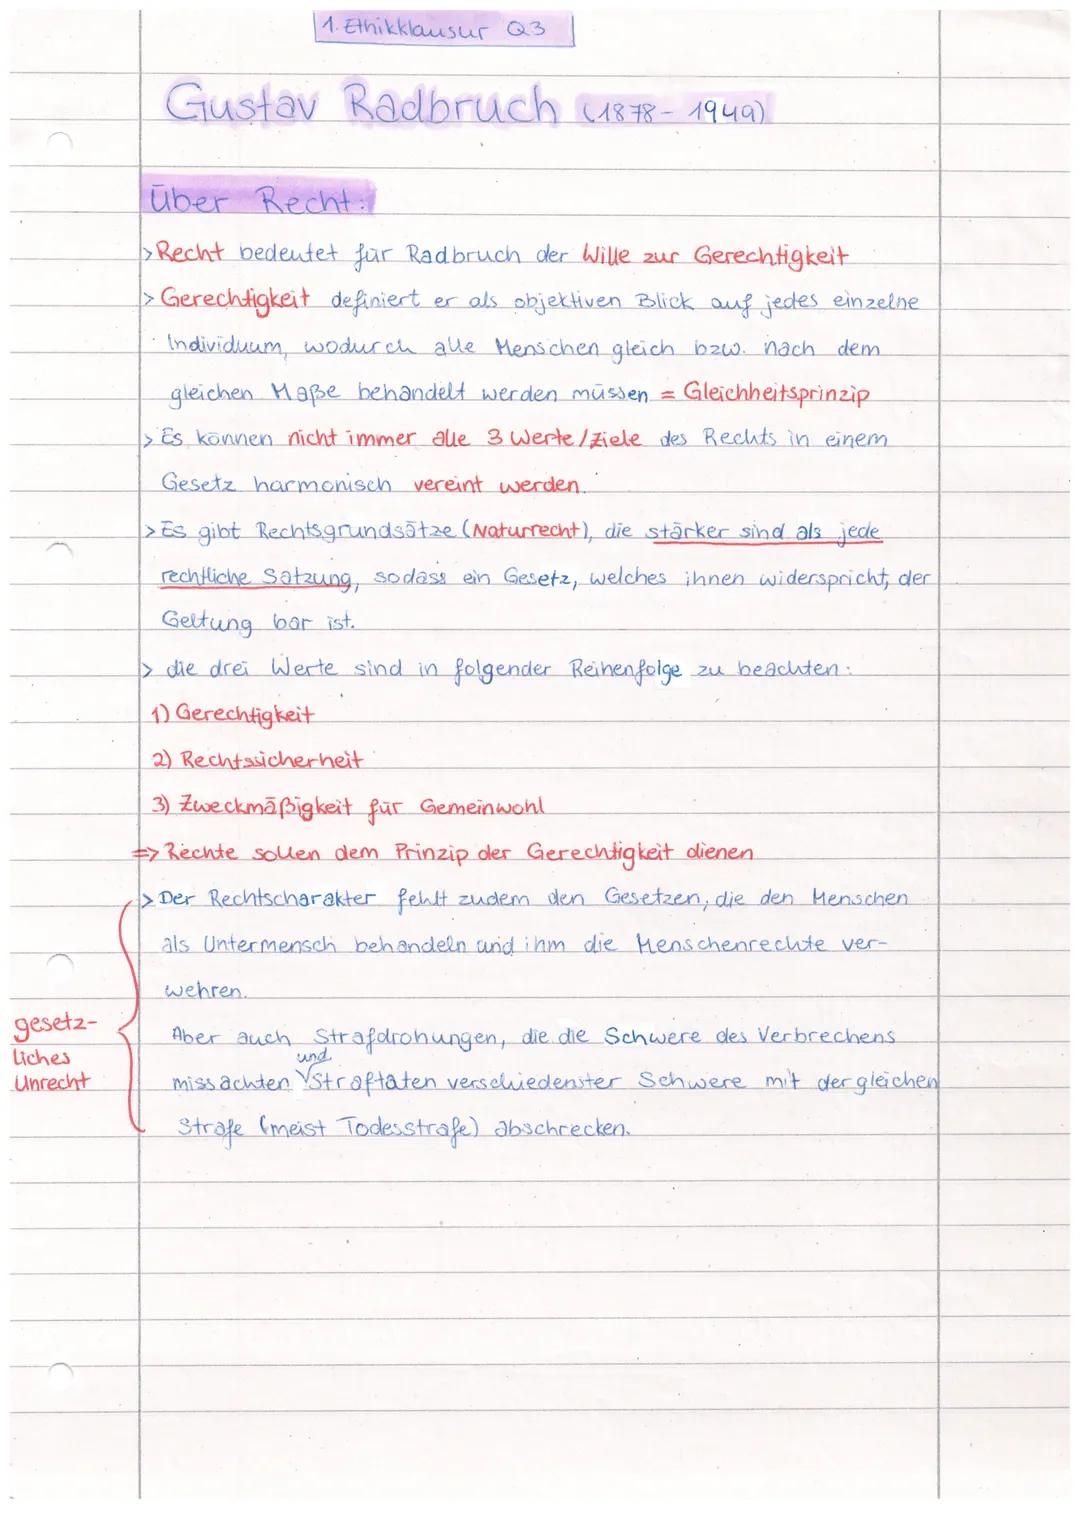 1. Ethikklausur Q3
Gustav Radbruch (1878-1949)
Über Recht:
> Recht bedeutet für Radbruch der Wille zur Gerechtigkeit
> Gerechtigkeit definiert er als objektiven Blick auf jedes einzelne
Individuum, wodurch alle Menschen gleich bzw. nach dem
gleichen Maße behandelt werden müssen = Gleichheitsprinzip
> Es können nicht immer alle 3 Werte/Ziele des Rechts in einem
Gesetz harmonisch vereint werden.
> Es gibt Rechtsgrundsätze (Naturrecht), die stärker sind als jede
rechtliche Satzung, sodass ein Gesetz, welches ihnen widerspricht, der
Geltung bar ist.
> die drei Werte sind in folgender Reihenfolge zu beachten:
1) Gerechtigkeit
2) Rechtssicherheit
3) Zweckmäßigkeit für Gemeinwohl
=> Rechte sollen dem Prinzip der Gerechtigkeit dienen
> Der Rechtscharakter fehlt zudem den Gesetzen, die den Menschen
als Untermensch behandeln und ihm die Menschenrechte ver-
wehren.
gesetz-
liches
Unrecht
Aber auch Strafdrohungen, die die Schwere des Verbrechens
missachten und Straftaten verschiedenster Schwere mit der gleichen
Strafe (meist Todesstrafe) abschrecken.